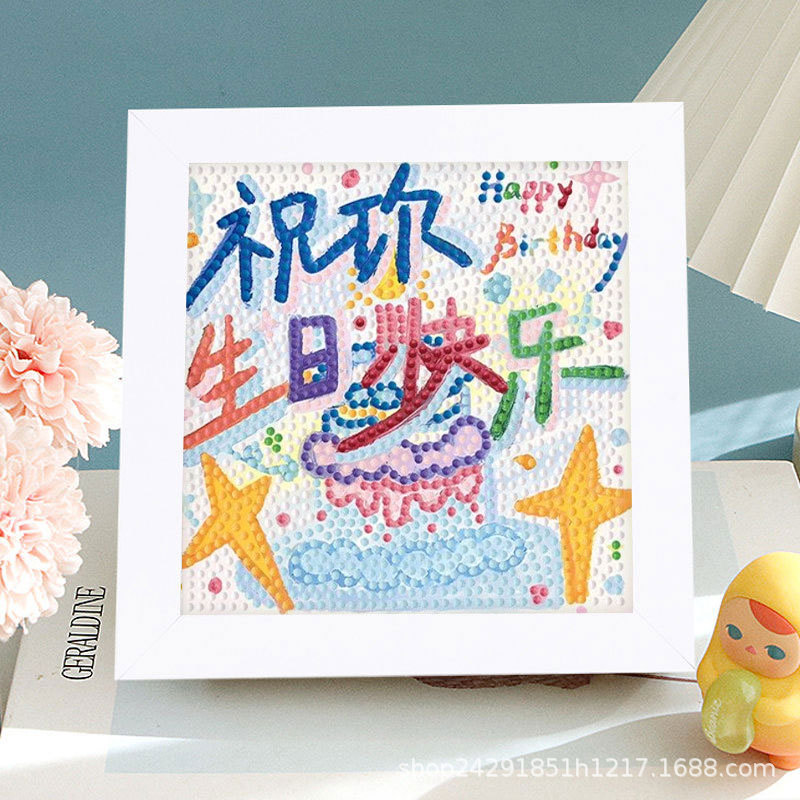 祝欢
Happy
Birthday
生日快乐
GERALDINE
shop24291851h1217.1688.com